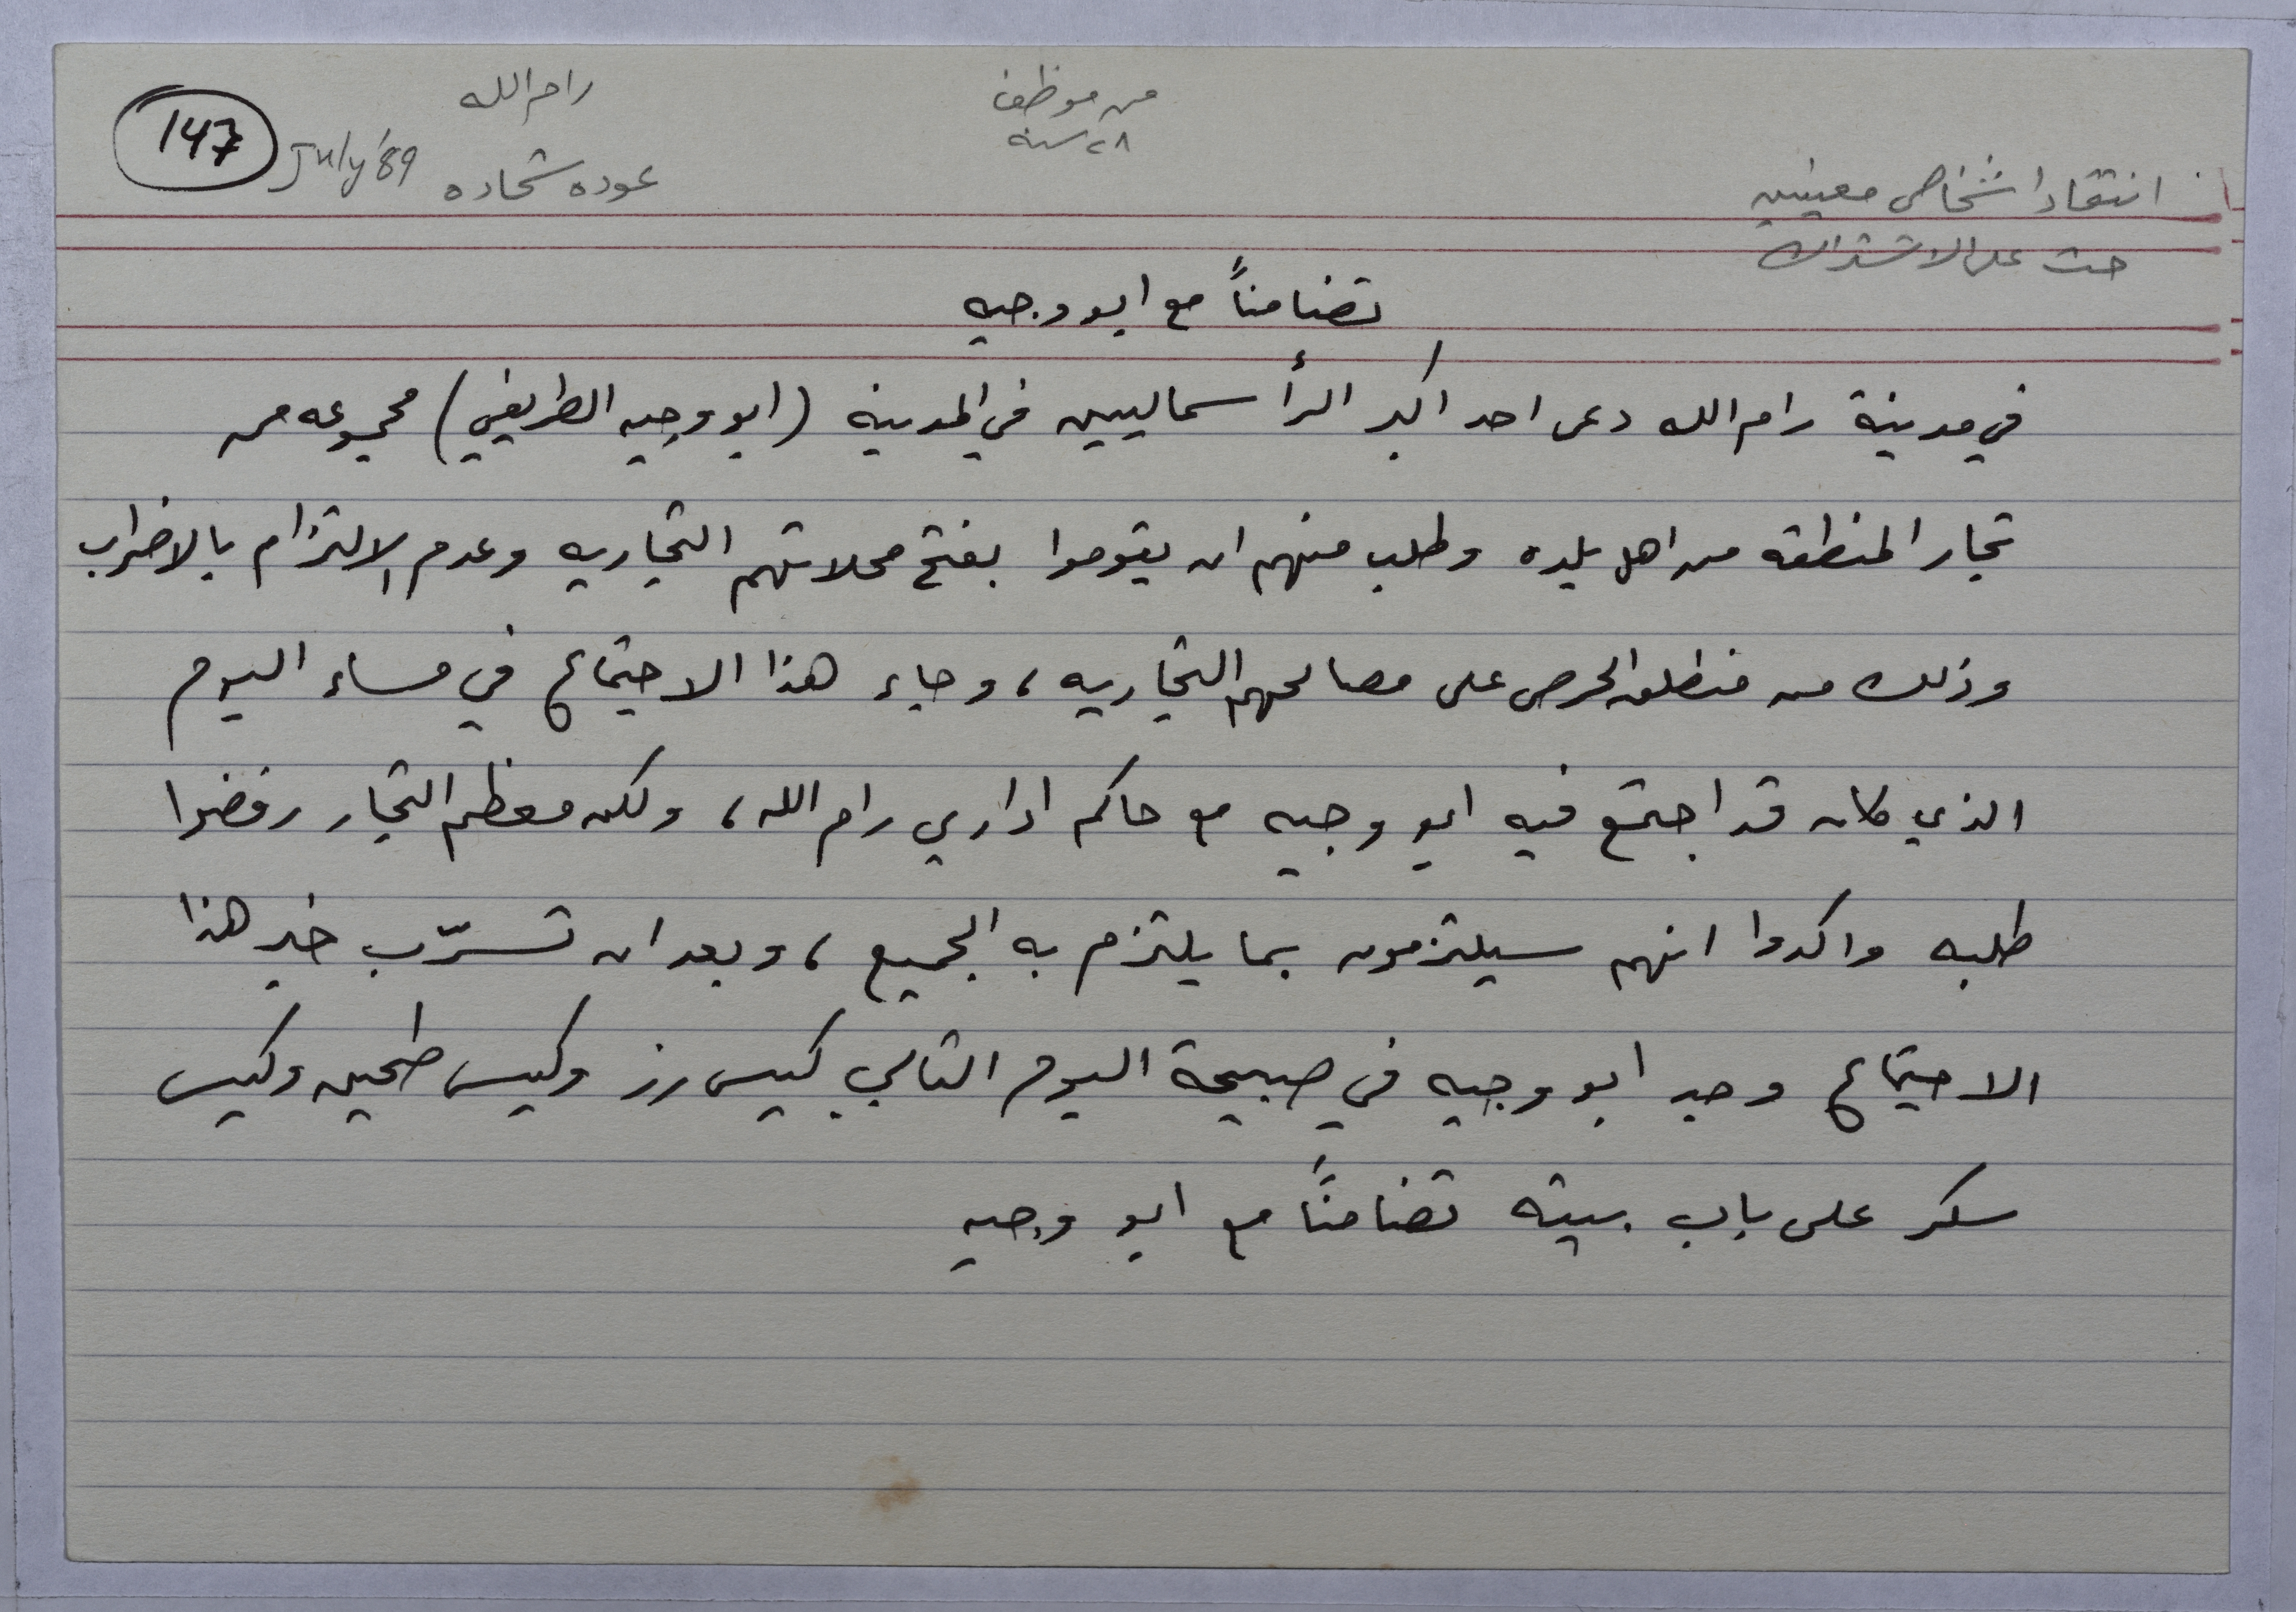 رام الله
من موظف
٢٨ سنه
147
July '89
عوده شحاده
انتقاد اشخاص معينين
حث على الاشتراك
تضامناً مع ابو وجيه
في مدينة رام الله دعى احد اكبر الرأسماليين في المدينه (ابو وجيه الطريفي) مجموعه من
تجار المنطقه من اهل بلده وطلب منهم ان يقوموا بفتح محلاتهم التجاريه وعدم الالتزام بالاضراب
وذلك من منطلق الحرص على مصالحهم التجاريه، وجاء هذا الاجتماع في مساء اليوم
الذي كان قد اجتمع فيه ابو وجيه مع حاكم اداري رام الله، ولكن معظم التجار رفضوا
طلبه واكدوا انهم سيلتزمون بما يلتزم به الجميع، وبعد ان تسرّب خبر هذا
الاجتماع وجد ابو وجيه في صبيحة اليوم التالي كيس رز وكيس طحين وكيس
سكر على باب بيته تضامناً مع ابو وجيه